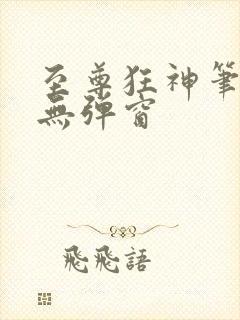 至尊狂神筆
無彈窗
飛飛語